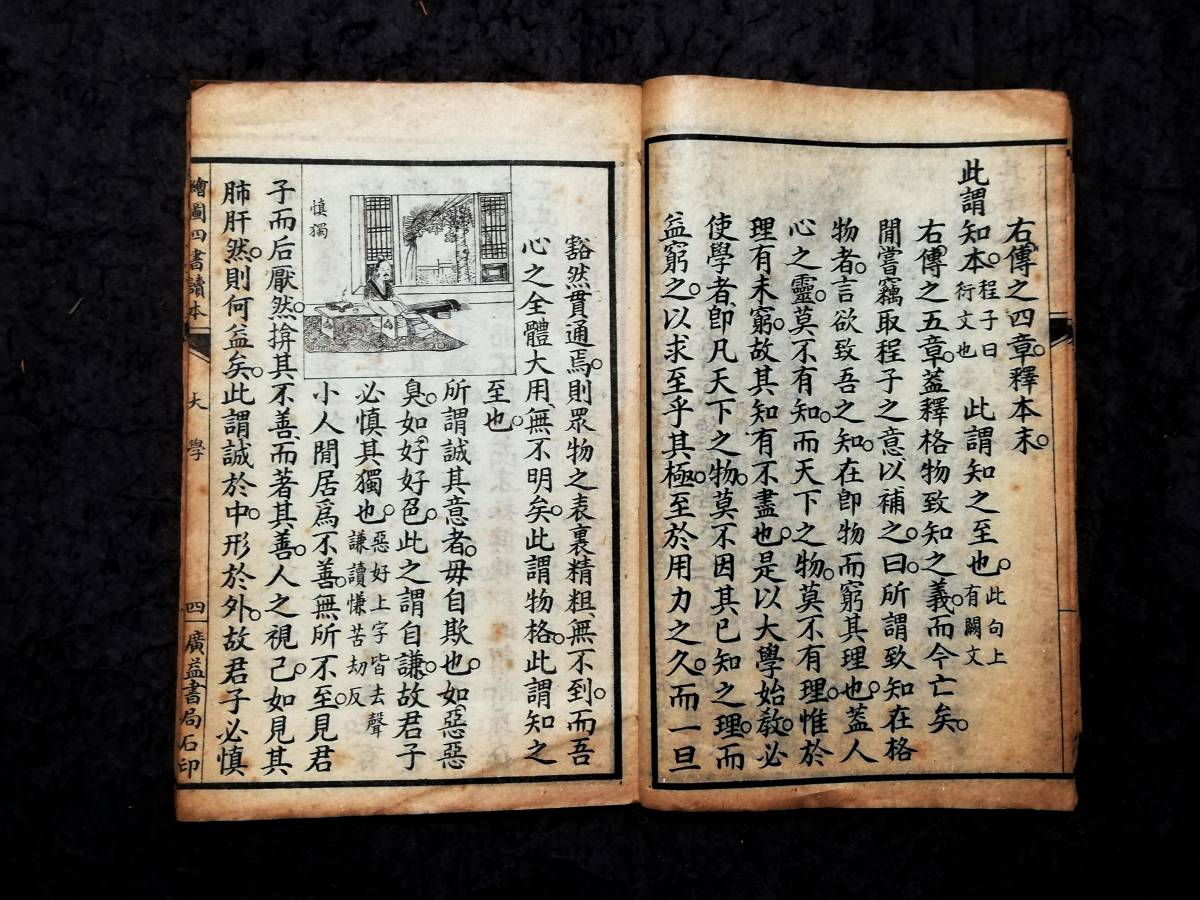 右傳之四章。釋本末。
此謂知本。程子曰衍文也 此謂知之至也。此句上有闕文
右傳之五章。葢釋格物致知之義。而今亡矣。
閒嘗竊取程子之意以補之。曰。所謂致知在格
物者。言欲致吾之知。在卽物而窮其理也。葢人
心之靈。莫不有知。而天下之物。莫不有理。惟於
理有未窮。故其知有不盡也。是以大學始敎。必
使學者卽凡天下之物。莫不因其已知之理。而
益窮之。以求至乎其極。至於用力之久。而一旦
豁然貫通焉。則眾物之表裏精粗無不到。而吾
心之全體大用。無不明矣。此謂物格。此謂知之
至也。
所謂誠其意者。毋自欺也。如惡惡
臭。如好好色。此之謂自謙。故君子
必慎其獨也。惡好上字皆去聲謙讀慊苦劫反
慎獨
小人閒居爲不善。無所不至。見君
子而后厭然。揜其不善。而著其善。人之視己。如見其
肺肝然。則何益矣。此謂誠於中。形於外。故君子必慎
繪圖四書讀本 大學 四 廣益書局石印